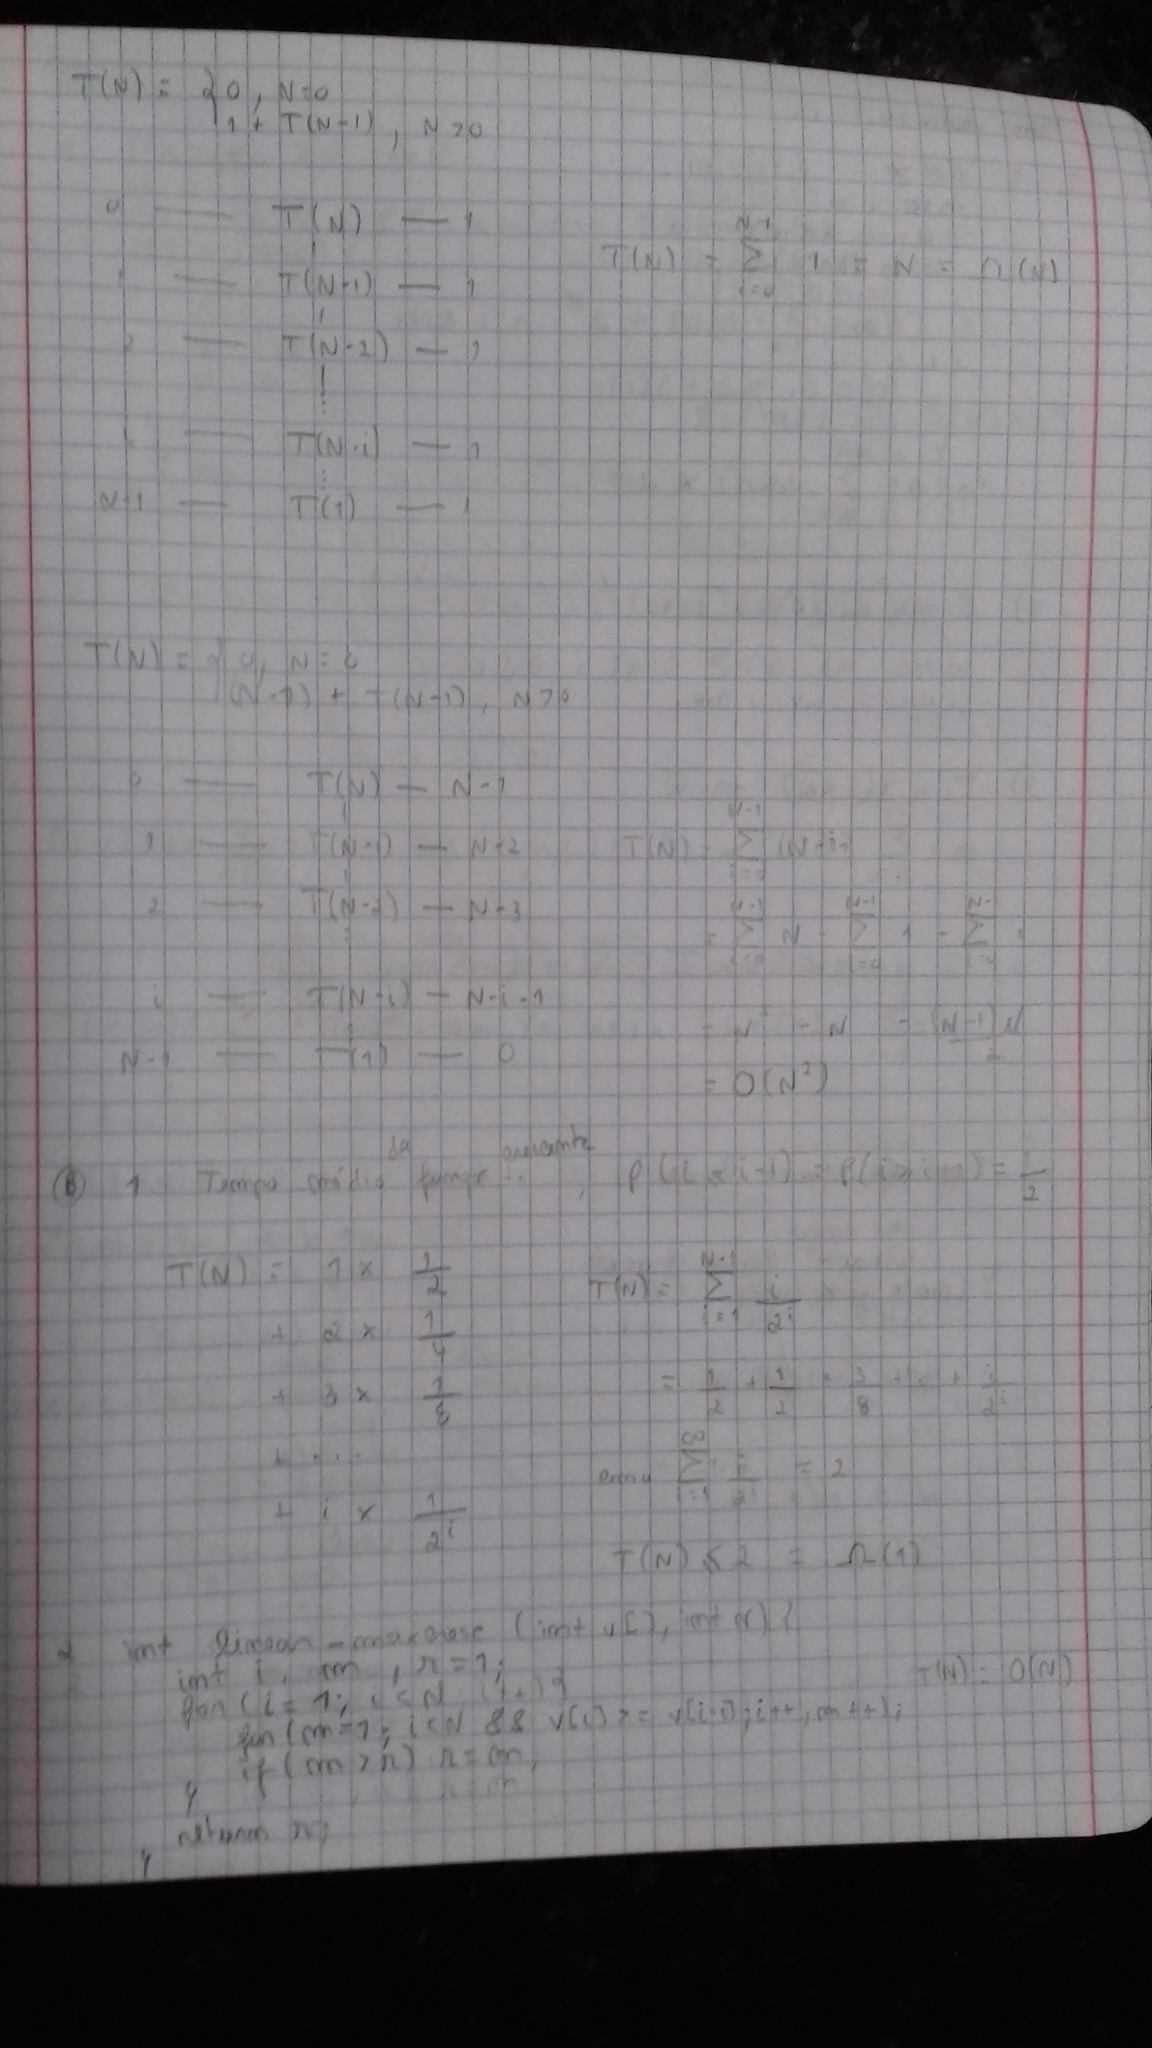 T(N) = { 0, N=0
1 + T(N-1), N>0
0 — T(N) — 1
1 — T(N-1) — 1
2 — T(N-2) — 1
i — T(N-i) — 1
N-1 — T(1) — 1
T(N) = ∑ i=0 N-1 1 = N = Ω(N)
T(N) = { 0, N=0
(N-1) + T(N-1), N>0
0 — T(N) — N-1
1 — T(N-1) — N-2
2 — T(N-2) — N-3
i — T(N-i) — N-i-1
N-1 — T(1) — 0
T(N) = ∑ i=0 N-1 (N-i-
= ∑ i=0 N-1 N - ∑ i=0 N-1 1 - ∑ i=0 N-1 i
= N² - N - (N-1)N/2
= O(N²)
(B) 1 Tempo médio da função crescente, = 1/2
T(N) = 1 × 1/2
+ 2 × 1/4
+ 3 × 1/8
+ ...
+ i × 1/2^i
T(N) = ∑ i=1 N-1 i/2^i
= 1/2 + 1/2 + 3/8 + ... + i/2^i
como ∑ i=1 ∞ i/2^i = 2
T(N) ≤ 2 = Ω(1)
2 int (int v[], int N) {
int i, m, r=1;
for (i=1; i<N; i++) {
for (m=1; i<N && v[i] >= v[i-1]; i++, m++);
if (m>r) r=m;
}
return r;
}
T(N) = O(N)